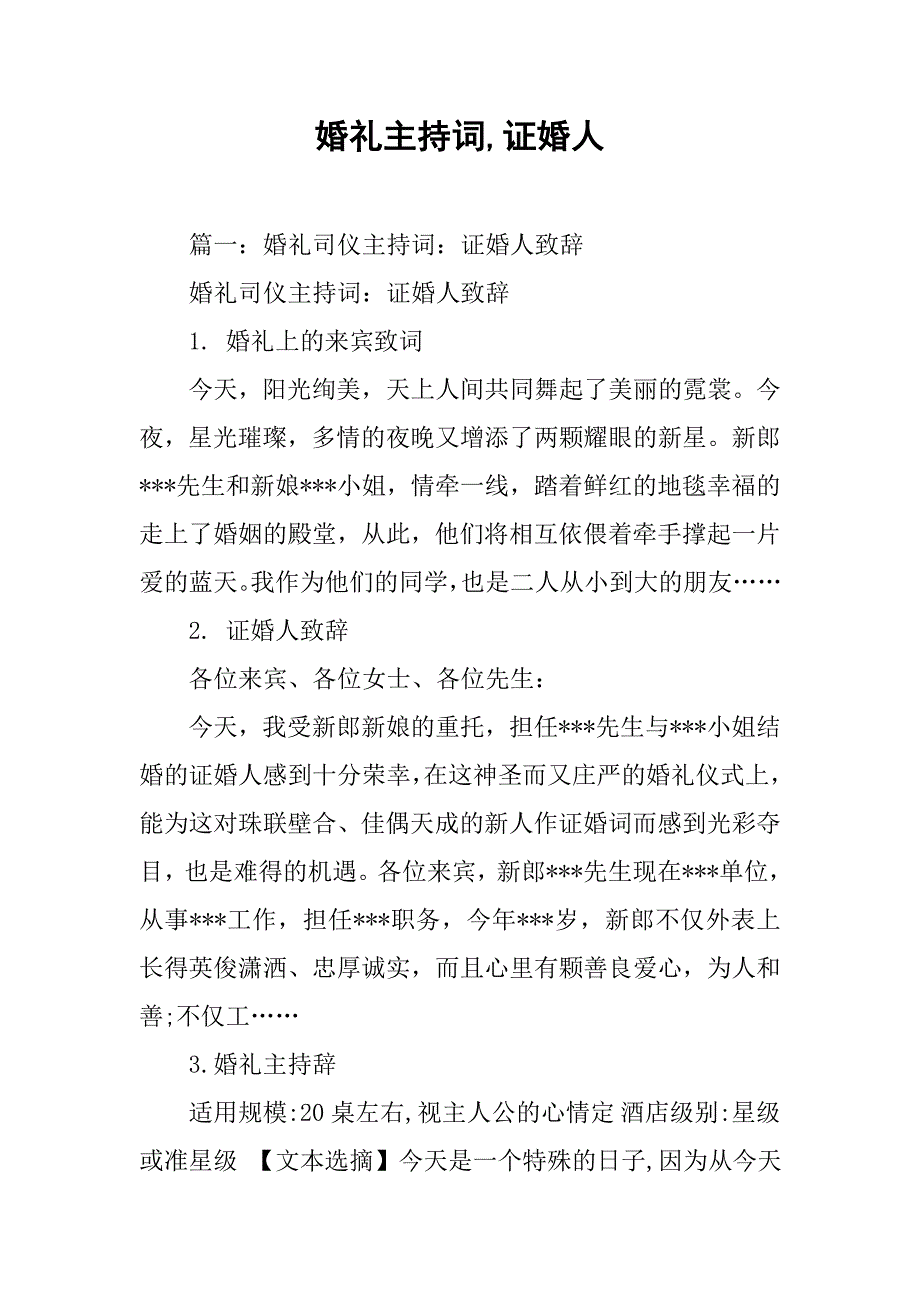 婚礼主持词,证婚人
篇一：婚礼司仪主持词：证婚人致辞
婚礼司仪主持词：证婚人致辞
1. 婚礼上的来宾致词
今天，阳光绚美，天上人间共同舞起了美丽的霓裳。今
夜，星光璀璨，多情的夜晚又增添了两颗耀眼的新星。新郎
***先生和新娘***小姐，情牵一线，踏着鲜红的地毯幸福的
走上了婚姻的殿堂，从此，他们将相互依偎着牵手撑起一片
爱的蓝天。我作为他们的同学，也是二人从小到大的朋友……
2. 证婚人致辞
各位来宾、各位女士、各位先生：
今天，我受新郎新娘的重托，担任***先生与***小姐结
婚的证婚人感到十分荣幸，在这神圣而又庄严的婚礼仪式上，
能为这对珠联壁合、佳偶天成的新人作证婚词而感到光彩夺
目，也是难得的机遇。各位来宾，新郎***先生现在***单位，
从事***工作，担任***职务，今年***岁，新郎不仅外表上
长得英俊潇洒、忠厚诚实，而且心里有颗善良爱心，为人和
善;不仅工……
3.婚礼主持辞
适用规模:20 桌左右,视主人公的心情定 酒店级别:星级
或准星级 【文本选摘】今天是一个特殊的日子,因为从今天